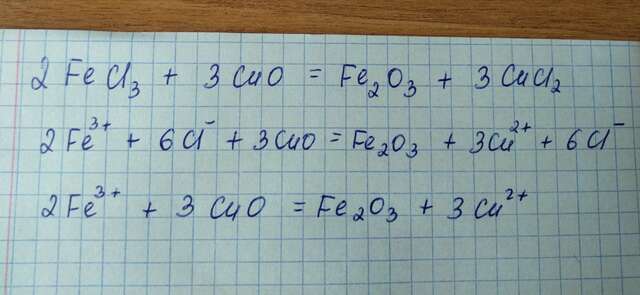 2FeCl₃ + 3CuO = Fe₂O₃ + 3CuCl₂
2Fe³⁺ + 6Cl⁻ + 3CuO = Fe₂O₃ + 3Cu²⁺ + 6Cl⁻
2Fe³⁺ + 3CuO = Fe₂O₃ + 3Cu²⁺